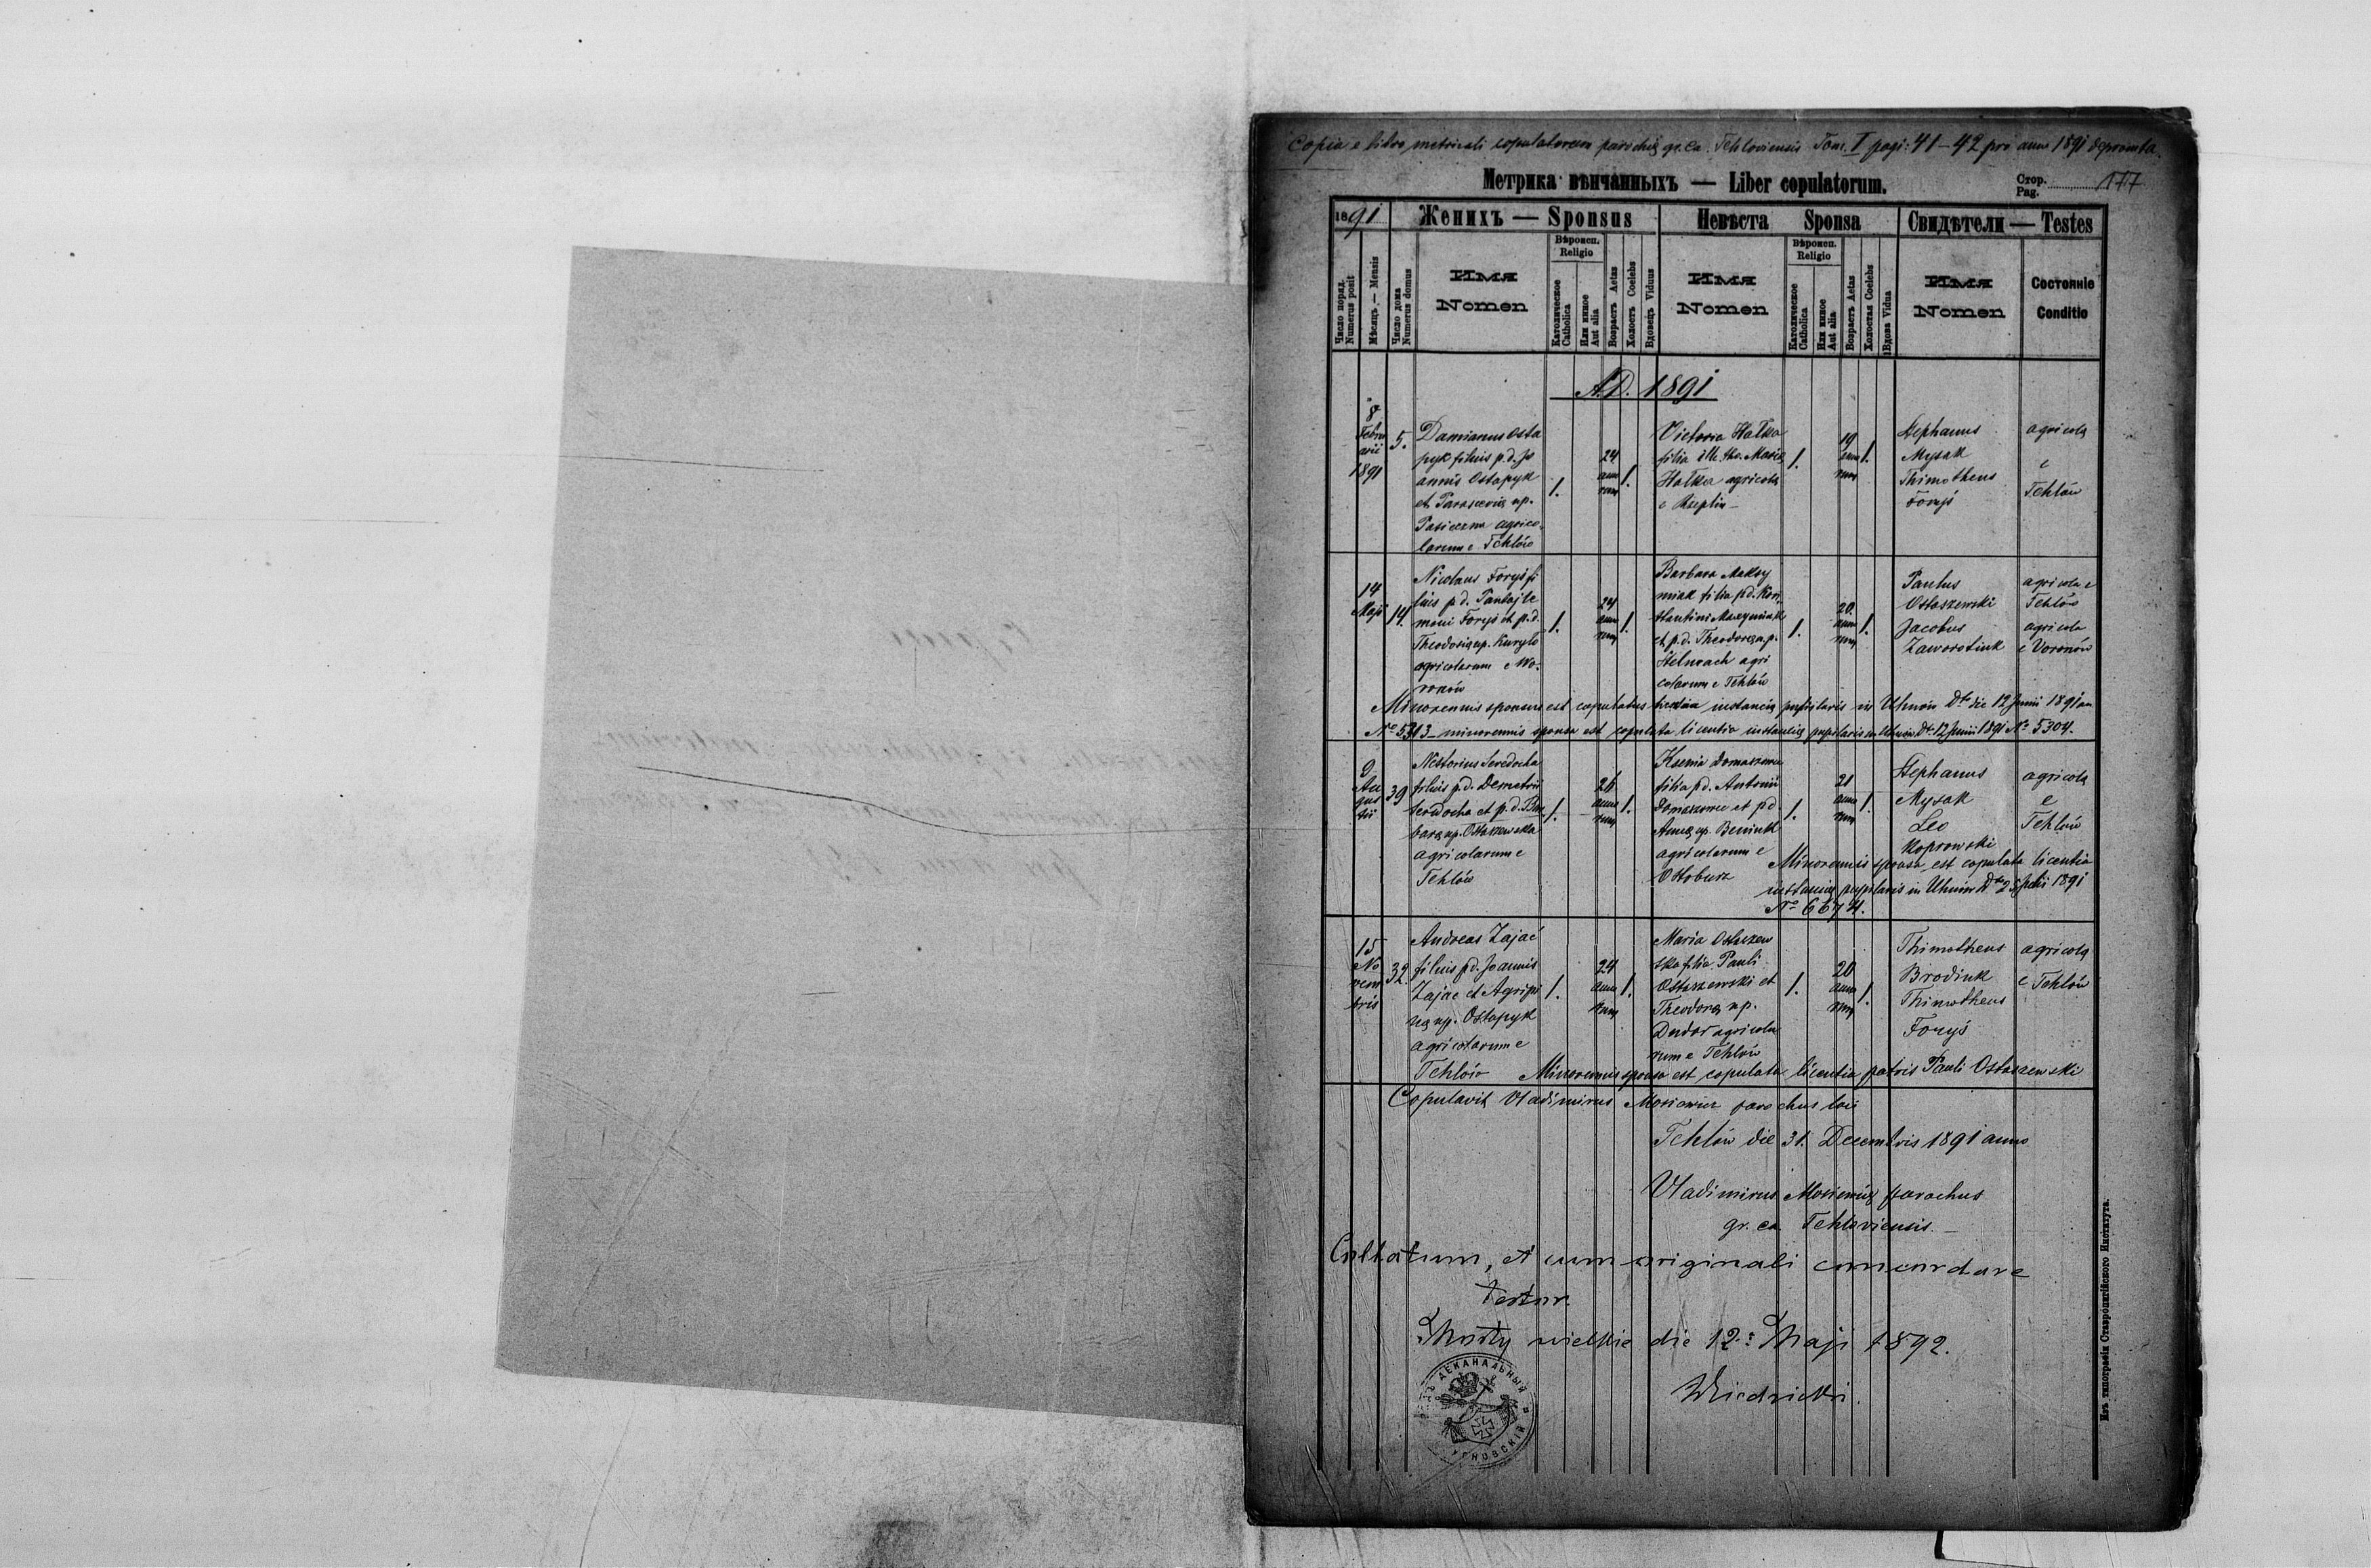 Copia e libro metricali copulatorum parochię gr. ca. Tehloviensis Tom. I pagi: 41-42 pro anno 1891 deprompta.
Метрика вѣнчанныхъ — Liber copulatorum.
Стор. Pag. 177
1891
Женихъ — Sponsus
Невѣста Sponsa
Свидѣтели — Testes
Число поряд. Numerus posit
Мѣсяцъ. — Mensis
Число дома Numerus domus
Имя Nomen
Вѣроисп. Religio
Католическое Catholica
Или инное Aut alia
Возрастъ Aetas
Холостъ Coelebs
Вдовецъ Viduus
Имя Nomen
Вѣроисп. Religio
Католическое Catholica
Или инное Aut alia
Возрастъ Aetas
Холостая Coelebs
Вдова Vidua
Имя Nomen
Состояніе Conditio
A.D. 1891
8
Febru
arii
1891
5.
Damianus Osta
pyk filius p.d. Jo
annis Ostapyk
et Parascevię np.
Pasiczna agrico-
larum e Tehlów
1.
24
anno
rum
1.
Victoria Hałka
filia ill. tho. Marię
Hałka agricola
e Rzeplin -
1.
19
anno
rum
1.
Stephanus
Mysak
Thimotheus
Foryś
agricolę
e
Tehlów
14
Maji
14.
Nicolaus Foryś fi
lius p.d. Pantajle
moni Foryś et p.d.
Theodosię np. Kuryło
agricolarum e Wo-
ronów
1.
24
anno
rum
1.
Barbara Maksy
miak filia p.d. Kon
stantini Maxymiak
et p.d. Theodorę np.
Stelmach agri
colarum e Tehlów
1.
20.
anno
rum
1.
Paulus
Ostaszewski
Jacobus
Zaworotiuk
agricola e
Tehlów
agricola
e Voronów
Minorennis sponsus est copulatus licentia instancię pupilaris in Uhnów Dto die 12 Junii 1891 an
No 5303 - minorennis sponsa est copulata licentia instancię pupilaris in Uhnów Dto 12 Junii 1891 No 5304.
9
Au
gus
tii
39
Nestorius Seredocha
filius p.d. Demetrii
Seredocha et p.d. Bar
barę np. Ostaszewska
agricolarum e
Tehlów
1.
26
anno
rum
1.
Ksenia Domaszowec
filia p.d. Antonii
Domaszowec et p.d.
Annę np. Beniuth
agricolarum e
Ostobusz
1.
21
anno
rum
1.
Stephanus
Mysak
Leo
Koprowski
agricolę
e
Tehlów
Minorennis sponsa est copulata licentia
instancię pupilaris in Uhnów Dto 28 Julii 1891
No 6674.
15
No
vem
bris
32.
Andreas Zając
filius p.d. Joannis
Zając et Agripi
nę np. Ostapyk
agricolarum e
Tehlów
1.
24
anno
rum
1.
Maria Ostaszew
ska filia Pauli
Ostaszewski et
Theodorę np.
Dudar agricola
rum e Tehlów
1.
20
anno
rum
1.
Thimotheus
Brodiuk
Thimotheus
Foryś
agricolę
e Tehlów
Minorennis sponsa est copulata licentia patris Pauli Ostaszewski
Copulavit Vladimirus Mosiewicz parochus loci
Tehlów die 31. Decembris 1891 anno
Vladimirus Mosiewicz parochus
gr. ca. Tehloviensis -
Collatum, et cum originali concordare
testor.
Mosty wielkie die 12. Maji 1892.
ДЕКАНАЛЬНЫЙ
УГНОВСКІЙ
Изъ типографіи Ставропигійского Института.